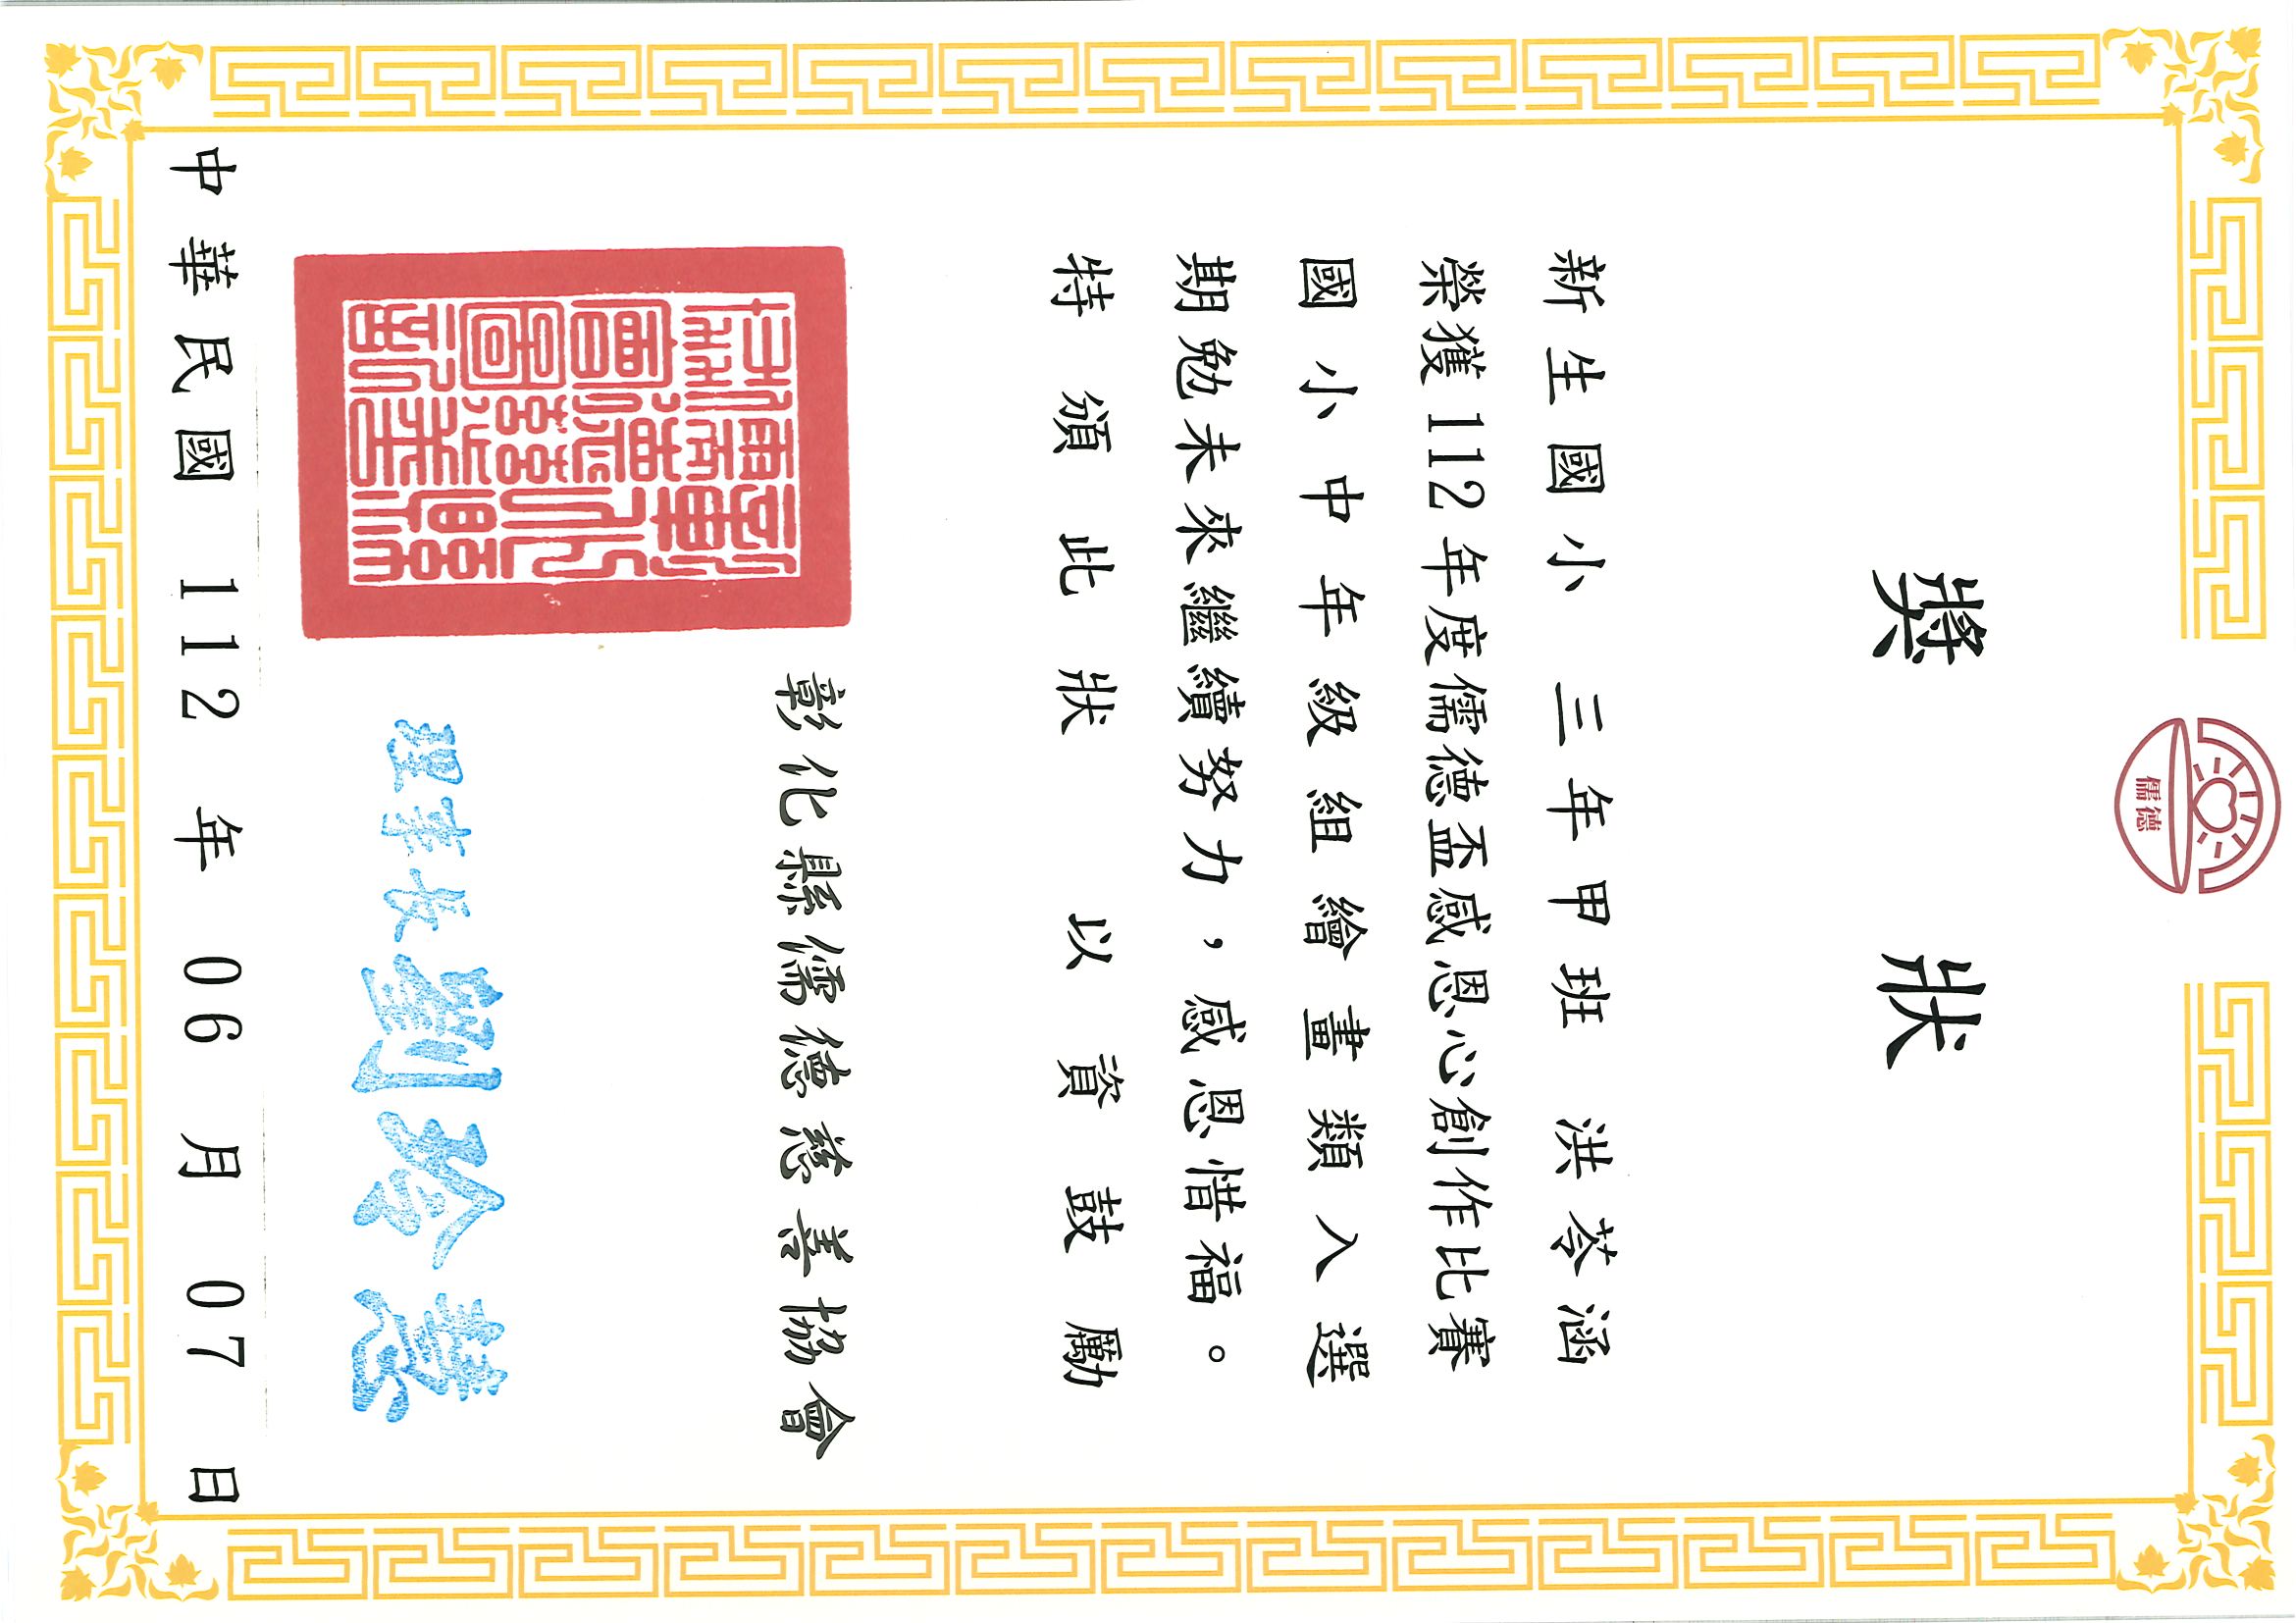 儒德
獎狀
新生國小 三年甲班 洪苓涵
榮獲112年度儒德盃感恩心創作比賽
國小中年級組繪畫類入選
期勉未來繼續努力，感恩惜福。
特頒此狀 以資鼓勵
彰化縣儒德慈善協會
理事長劉玲慧
中華民國 112 年 06 月 07 日